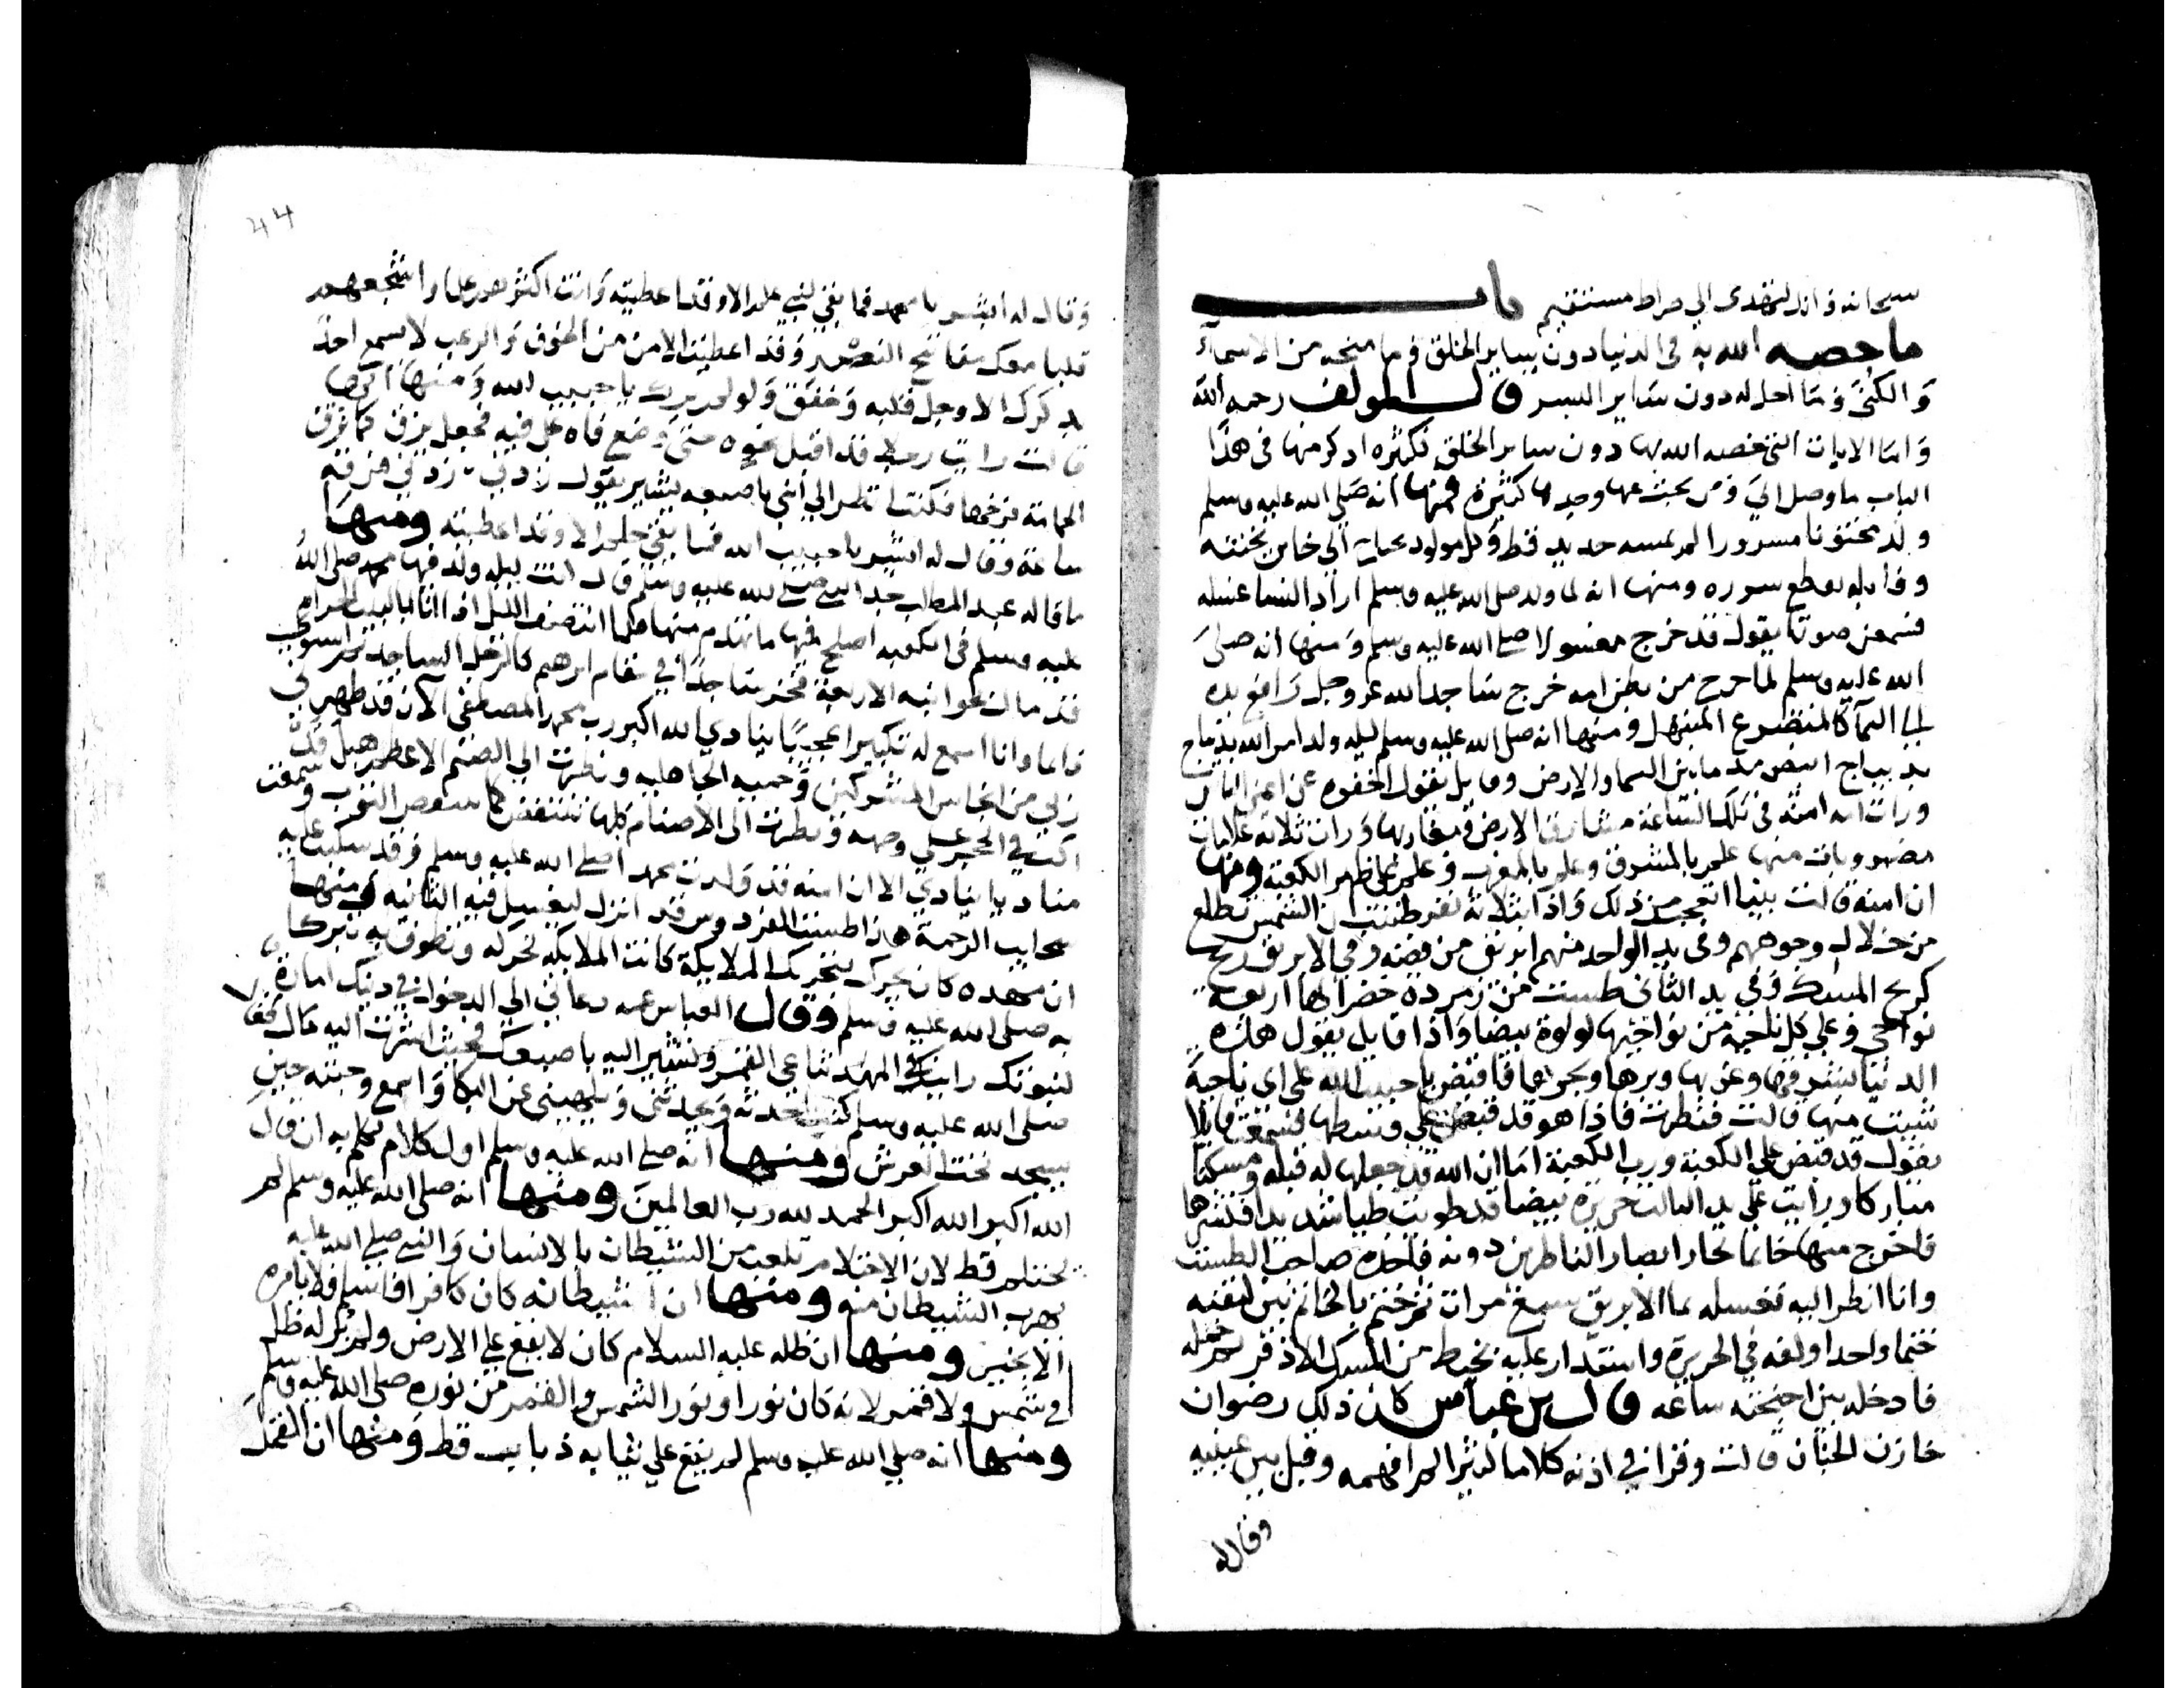 سبحانه وانك لتهدى الى صراط مستقيم باب
ما خصه الله به فى الدنيا دون ساير الخلق وما منحه من الاسماء
والكنى وما احل له دون ساير البشر قال المولف رحمه الله
واما الايات التى خصه الله بها دون ساير الخلق فكثيره اذكر منها فى هذا
الباب ما وصل الي ومن بحث عنها وجدها كثيرة فمنها انه صلى الله عليه وسلم
ولد مختونا مسرورا لم يمسه حديد قط وكل مولود يحتاج الى خاتن يختنه
وقابله تقطع سرره ومنها انه لما ولد صلى الله عليه وسلم اراد النسا غسله
فسمعن صوتا يقول قد خرج مغسولا صلى الله عليه وسلم ومنها انه صلى
الله عليه وسلم لما خرج من بطن امه خرج ساجدا لله عز وجل رافع يده
الى السما كالمتضرع المبتهل ومنها انه صلى الله عليه وسلم ليله ولد امر الله
بديباج ابيض مد ما بين السما والارض وقايل يقول اخفوه عن اعين الناس
ورات امه امنه فى تلك الساعه مشارق الارض ومغاربها ورات ثلاثه علامات
مضروبات منها علم بالمشرق وعلم بالمغرب وعلم على ظهر الكعبة ومنها
ان امنة قالت بينا اتعجب من ذلك واذا بثلاثة نفر ظننت ان الشمس تطلع
من خلال وجوههم وفى يد الواحد منهم ابريق من فضه وفى الابريق ريح
كريح المسك وفى يد الثانى طست من زمردة خضرا لها اربعة
نواحى وعلى كل ناحية من نواحيها لولوة بيضا واذا قايل يقول هذه
الدنيا شرقها وغربها وبرها وبحرها فاقبض يا حبيب الله على اى ناحية
شيت منها قالت فنظرت فاذا هو قد قبض على وسطها فسمعت قايلا
يقول قد قبض على الكعبة ورب الكعبة اما ان الله قد جعلها له قبله ومسكنا
مباركا ورايت على يد الثالث حريرة بيضا قد طويت طيا شديدا فنشرها
فاخرج منها خاتما تحار ابصار الناظرين دونه فاخذه صاحب الطست
وانا انظر اليه فغسله بما الابريق سبع مرات ثم ختم بالخاتم بين كتفيه
ختما واحدا ولفه فى الحريرة واستدار عليه بخيط من المسك الاذفر ثم حمله
فادخله بين اجنحته ساعه قال بن عباس كان ذلك رضوان
خازن الجنان قالت وقرا في اذنه كلاما كثيرا لم افهمه وقبل بين عينيه
وقال له
44
وقال له ابشر يا محمد فما بقى لنبي علم الا وقد اعطيته وانت اكثرهم علما واشجعهم
قلبا معك مفاتيح النصر وقد اعطيت الامن من الخوف والرعب لا يسمع احد
بذكرك الا وجل قلبه وخفق ولو لم يرك يا حبيب الله ومنها
قالت رايت رجلا قد اقبل نحوه حتى وضع فاه على فيه فجعل يزق كما تزق
الحمامة فرخها فكنت انظر الى ابنى باصبعه يشير يقول زدنى زدني فزقه
ساعة وقال له ابشر يا حبيب الله فما بقى حلم الا وقد اعطيته ومنها
ما قاله عبد المطلب جد النبي صلى الله عليه وسلم قال كنت ليله ولد فيها محمد صلى الله
عليه وسلم فى الكعبه اصلح فيها ما تهدم منها فلما انتصف الليل اذا انا بالبيت الحرام
قد مال بجوانبه الاربعة فخر ساجدا في مقام ابرهيم كالرجل الساجد ثم استوى
قايما وانا اسمع له تكبيرا عجيبا ينادي الله اكبر رب محمد المصطفى الان قد طهرني
ربي من انجاس المشركين وحمية الجاهليه ونظرت الى الصنم الاعظم هبل قد
انكب في الحجر على وجهه ونظرت الى الاصنام كلها تنتفض كما ينتفض الثوب وسمعت
مناديا ينادي الا ان امنه قد ولدت محمدا صلى الله عليه وسلم وقد سكبت عليه
سحايب الرحمة هذا طست الفردوس قد انزل ليغسل فيه الثانيه ومنها
ان مهده كان يتحرك بتحريك الملايكة كانت الملايكه تحركه وتطوف به تبركا
به صلى الله عليه وسلم وقال العباس عمه دعاني الى الدخول في دينك امارة
لنبوتك رايتك في المهد تناغي القمر وتشير اليه باصبعك فحيث اشرت اليه مال فقال
صلى الله عليه وسلم كنت احدثه ويحدثنى ويلهيني عن البكا واسمع وجبته حين
يسجد تحت العرش ومنها انه صلى الله عليه وسلم اول كلام تكلم به ان قال
الله اكبر الله اكبر الحمد لله رب العالمين ومنها انه صلى الله عليه وسلم لم
يحتلم قط لان الاحتلام تلعب من الشيطان بالانسان والنبي صلى الله عليه
يهرب الشيطان منه ومنها ان شيطانه كان كافرا فاسلم فلا يامره
الا بخير ومنها ان ظله عليه السلام كان لا يقع على الارض ولم ير له ظل
في شمس ولا قمر لانه كان نورا ونور الشمس والقمر من نوره صلى الله عليه وسلم
ومنها انه صلي الله عليه وسلم لم يقع علي ثيابه ذباب قط ومنها ان القمل